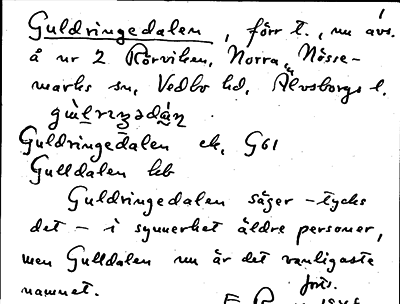 1
Guldringedalen, förr t., nu avs.
å nr 2 Rörviken, Norra Nösse-
marks sn, Vedbo hd, Älvsborgs l.
Guldringedalen ek, G61
Gulldalen hb
Guldringedalen säger – tycks
det – i synnerhet äldre personer,
men Gulldalen nu är det vanligaste
namnet. forts.